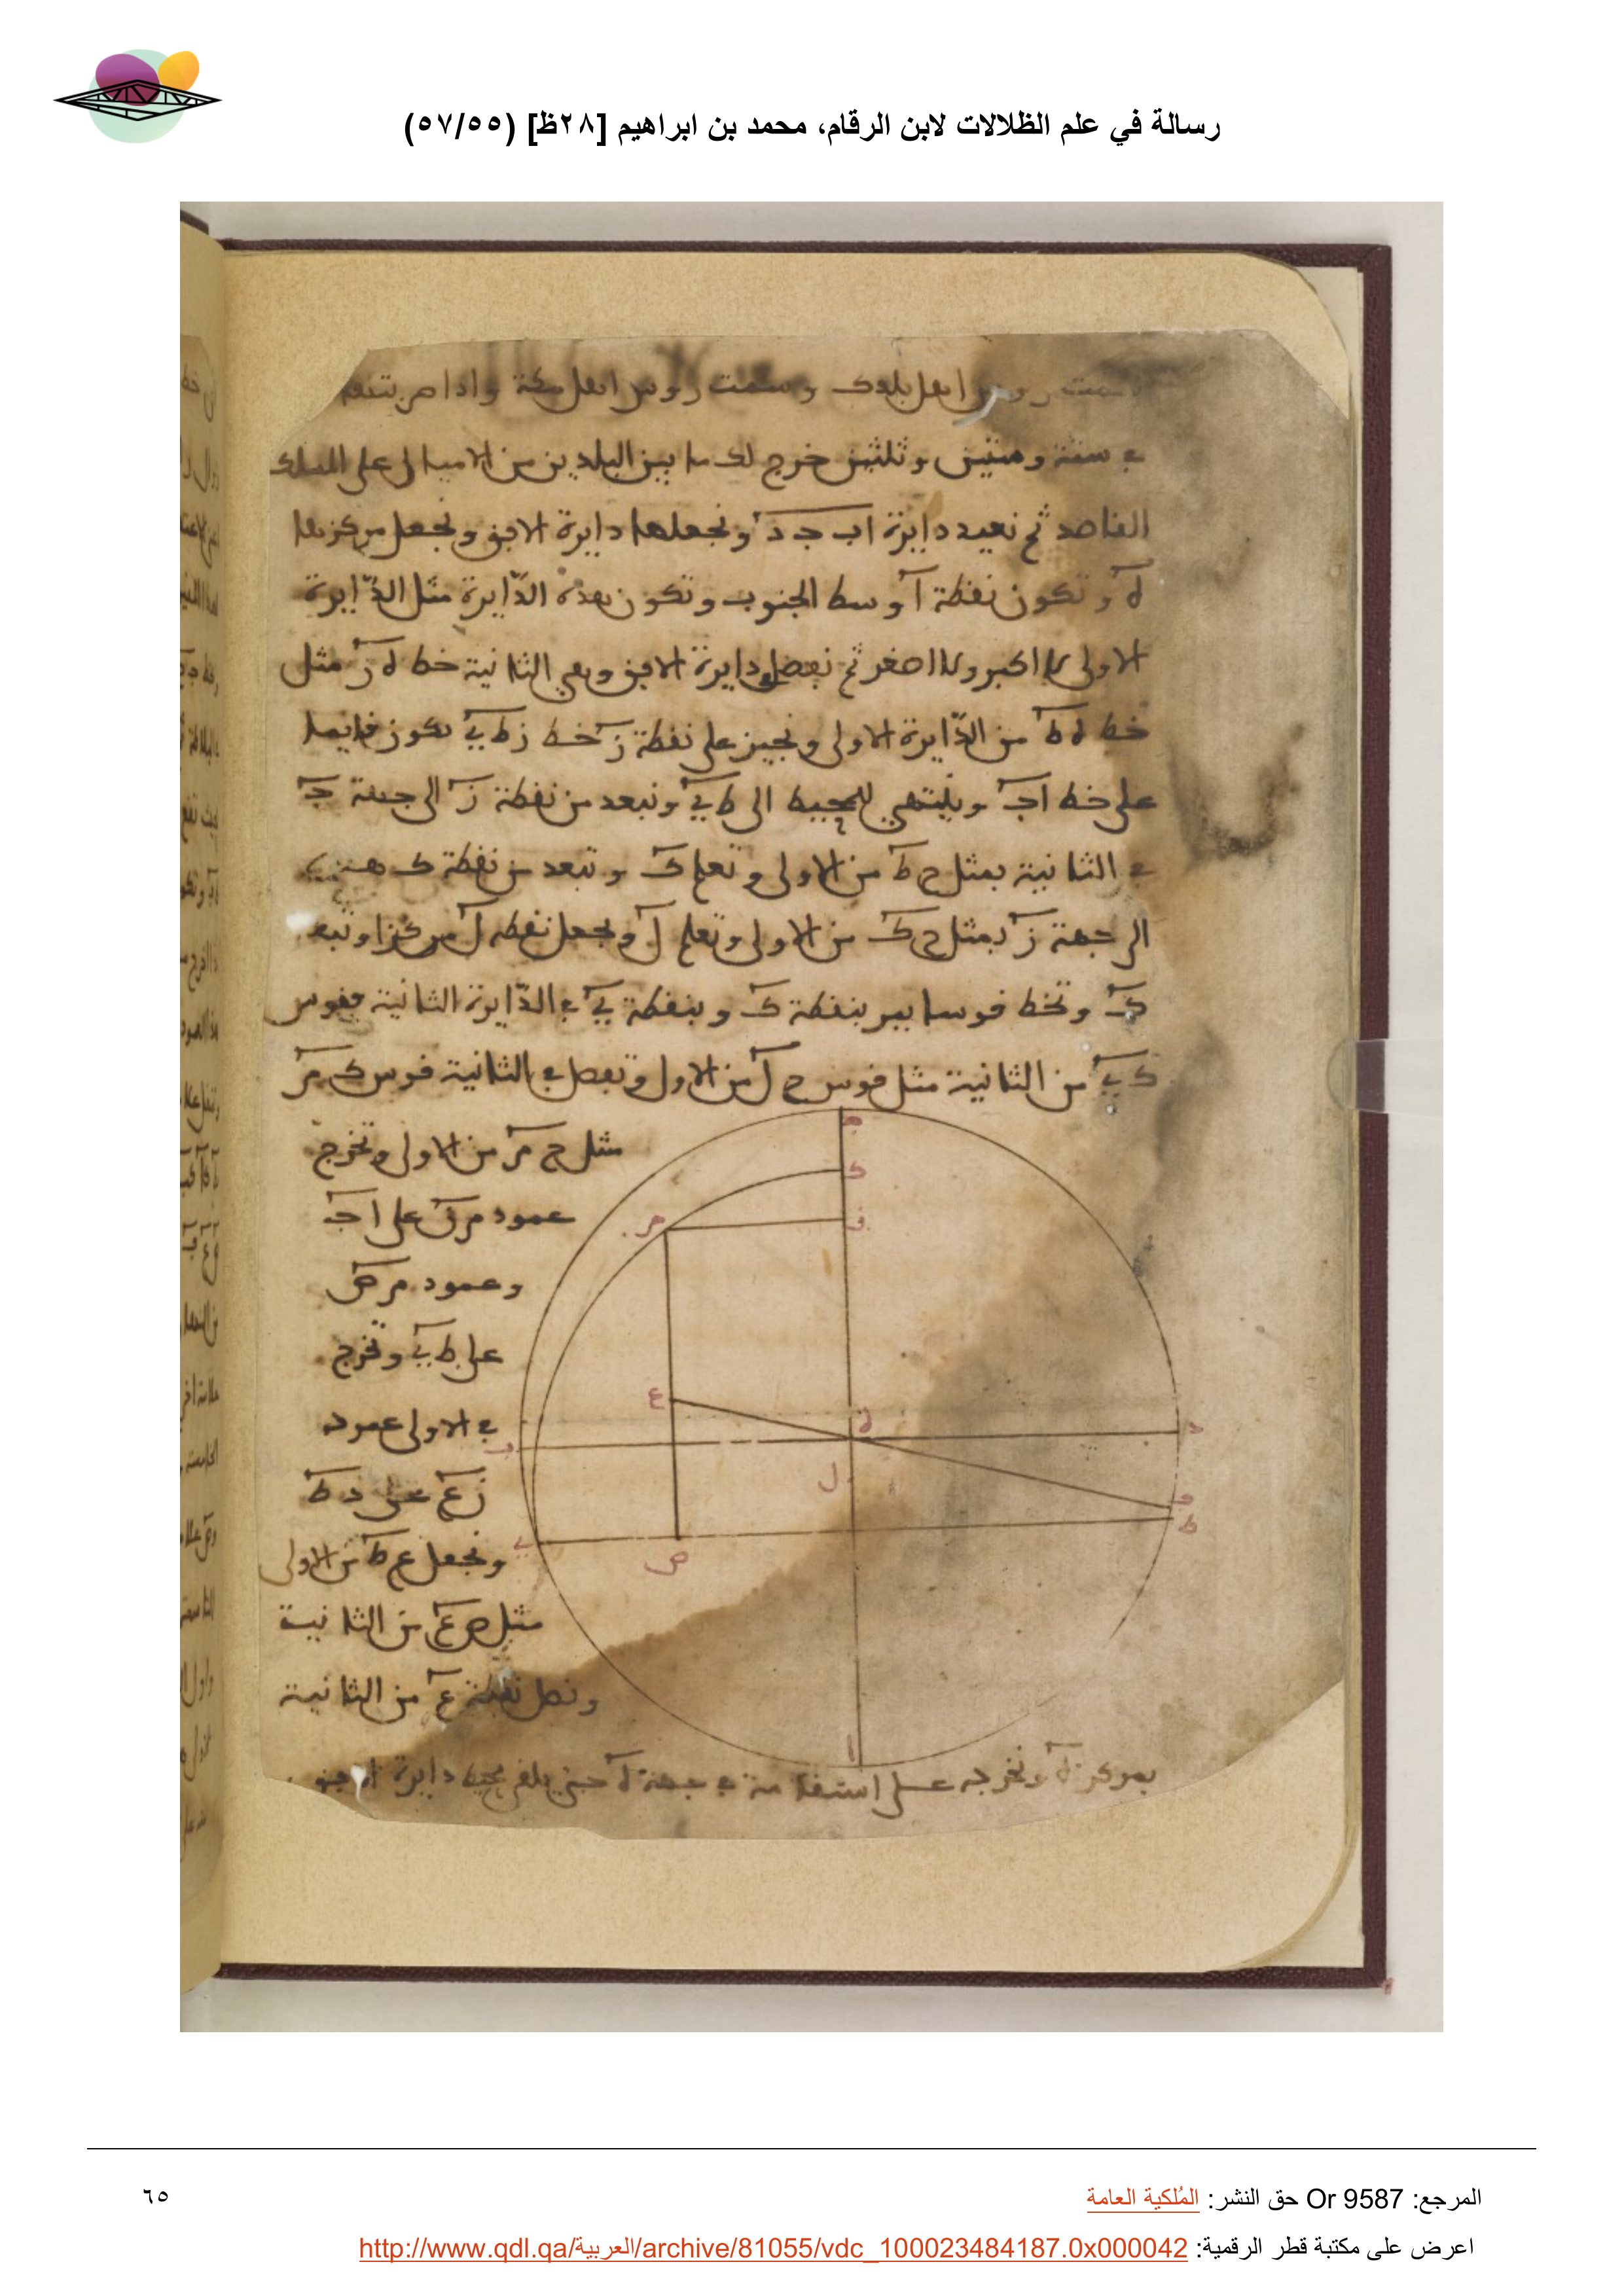 رسالة في علم الظلالات لابن الرقام، محمد بن ابراهيم [٢٨ظ] (٥٧/٥٥)
روس اهل بلدك وسمت روس اهل مكة واذا ضربته
في ستة وستين وثلثين خرج لك ما بين البلدين من الاميال على المسلك
القاصد ثم نعيد دايرة اب جد ونجعلها دايرة الافق ونجعل مركزها
ه وتكون نقطة ا وسط الجنوب وتكون هذه الدّايرة مثل الدّايرة
الاولى لا اكبر ولا اصغر ثم نفصل دايرة الافق وهي الثانية خط ه ز مثل
خط ه ط من الدّايرة الاولى ونجيز على نقطة ز خط ز ط ي يكون قايما
على خط اج وينتهي للمحيط الى ط ي ونبعد من نقطة ز الى جهة ج
في الثانية بمثل ح ط من الاولى ونعلم ك ونبعد من نقطة ك
الى جهة ز بمثل ح ك من الاولى ونعلم ل ونجعل نقطة ل مركزا وببعد
ك ونخط قوسا يمر بنقطة ك وبنقطة ي في الدّايرة الثانية فقوس
ك ي من الثانية مثل قوس ح ل من الاولى ونفصل في الثانية قوس ك م
مثل ح م من الاولى ونخرج
عمود م ف على ا ج
وعمود م ص
على ط ي ونخرج
في الاولى عمود
ز ع على د ط
ونجعل ع ط من الاولى
مثل ص ع من الثانية
ونصل نقطة ع من الثانية
بمركز ه ونخرجه على استقامة في جهة ه حتى يلقى محيط دايرة
ج
ك
ف
م
ع
ه
د
ب
ل
ط
ي
ص
ا
المرجع: Or 9587 حق النشر: المُلكية العامة
٦٥
اعرض على مكتبة قطر الرقمية: http://www.qdl.qa/العربية/archive/81055/vdc_100023484187.0x000042